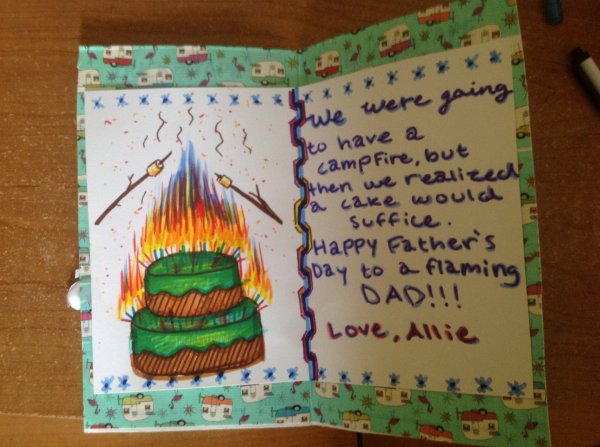 We were going
to have a
campfire, but
then we realized
a cake would
suffice.
Happy Father's
Day to a flaming
DAD!!!
Love, Allie